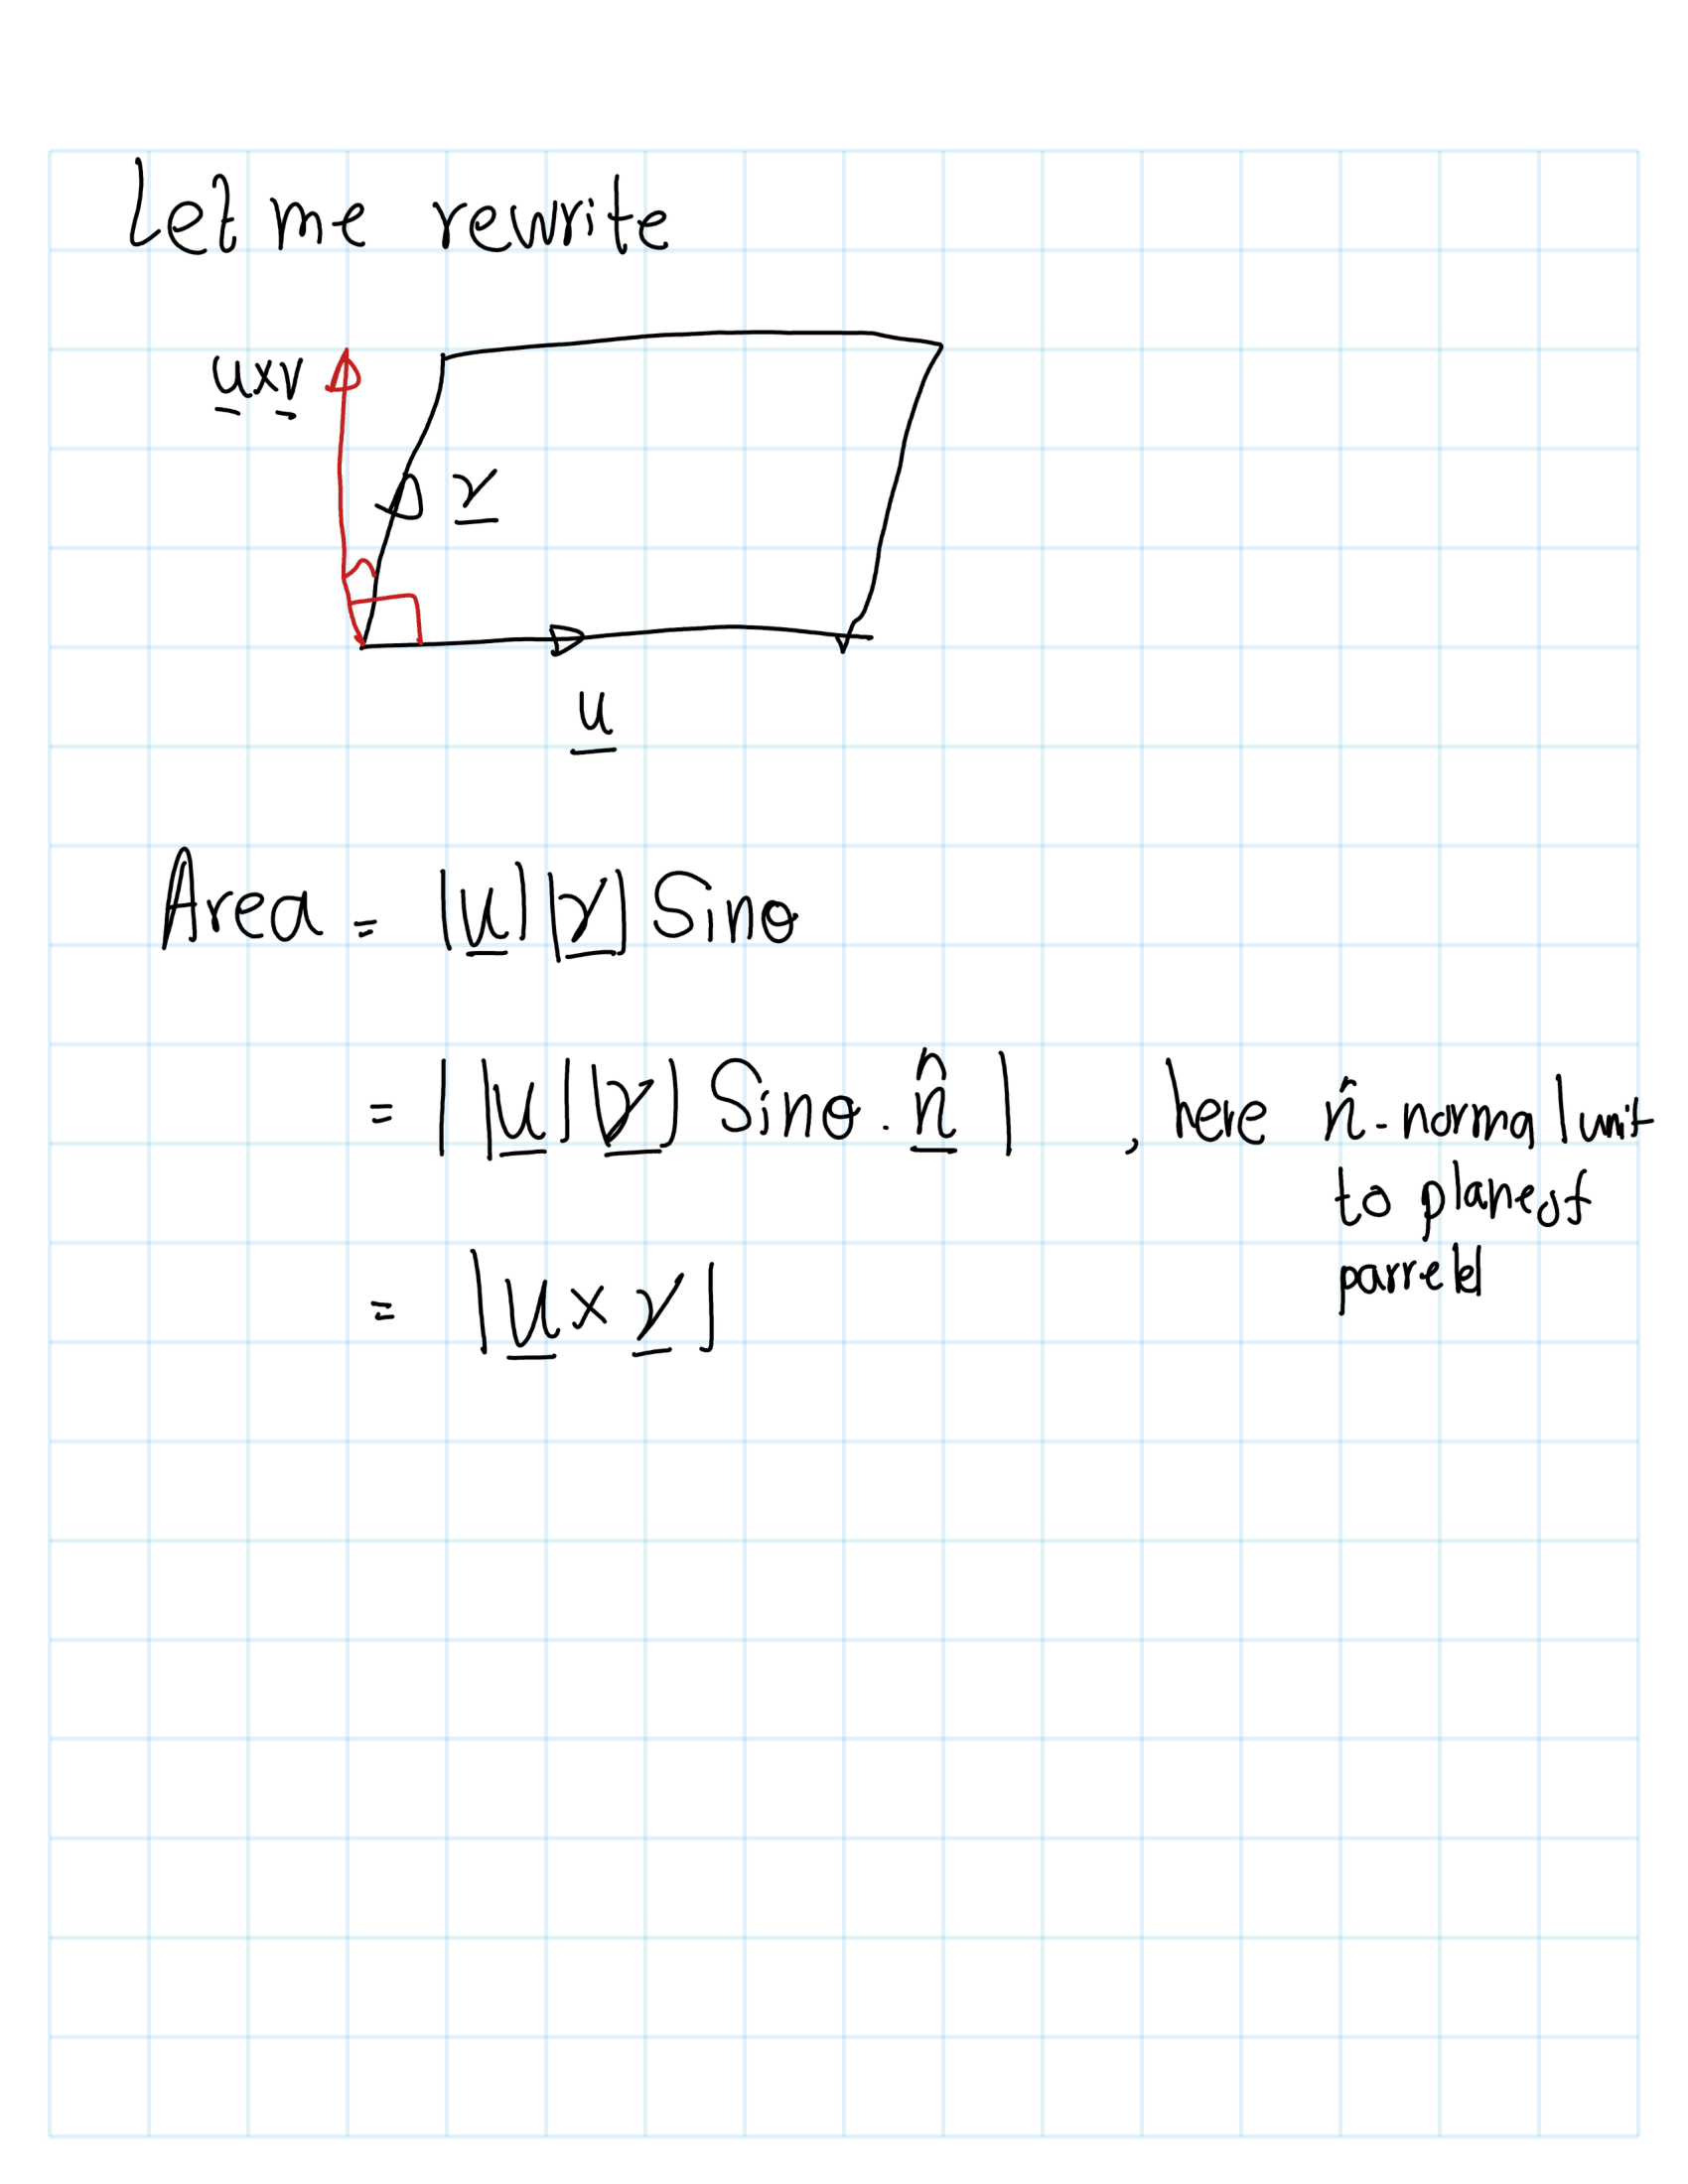 Let me rewrite
u×v
v
u
Area = |u||v| Sinθ
= ||u||v| Sinθ . n̂| , here n̂ - normal unit
to plane of
parrelel
= |u×v|